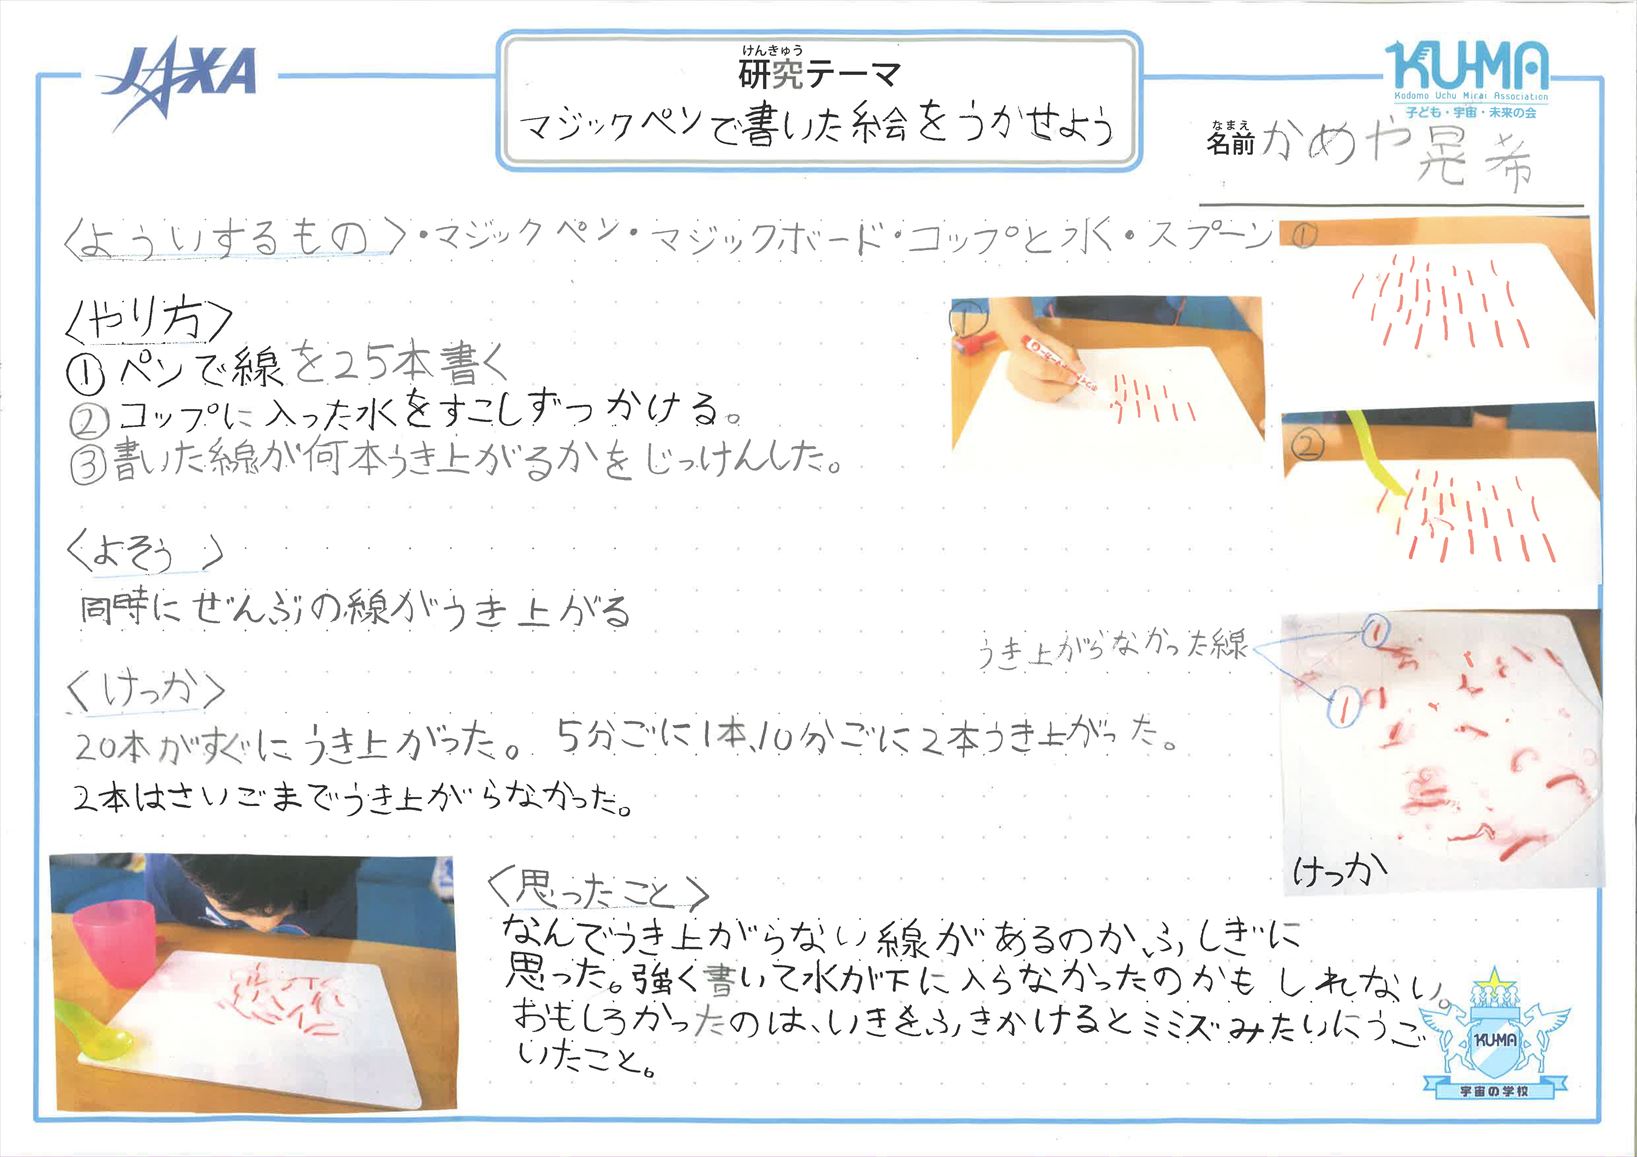 JAXA
けんきゅう
研究テーマ
マジックペンで書いた絵をうかせよう
KU-MA
Kodomo Uchu Mirai Association
子ども・宇宙・未来の会
なまえ
名前 かめや晃希
〈よういするもの〉・マジックペン・マジックボード・コップと水・スプーン
①
〈やり方〉
①ペンで線を25本書く
②コップに入った水をすこしずつかける。
③書いた線が何本うき上がるかをじっけんした。
①
②
〈よそう〉
同時にぜんぶの線がうき上がる
うき上がらなかった線
〈けっか〉
20本がすぐにうき上がった。 5分ごに1本、10分ごに2本うき上がった。
2本はさいごまでうき上がらなかった。
けっか
〈思ったこと〉
なんでうき上がらない線があるのかふしぎに
思った。強く書いて水が下に入らなかったのかもしれない。
おもしろかったのは、いきをふきかけるとミミズみたいにうご
いたこと。
KU-MA
宇宙の学校